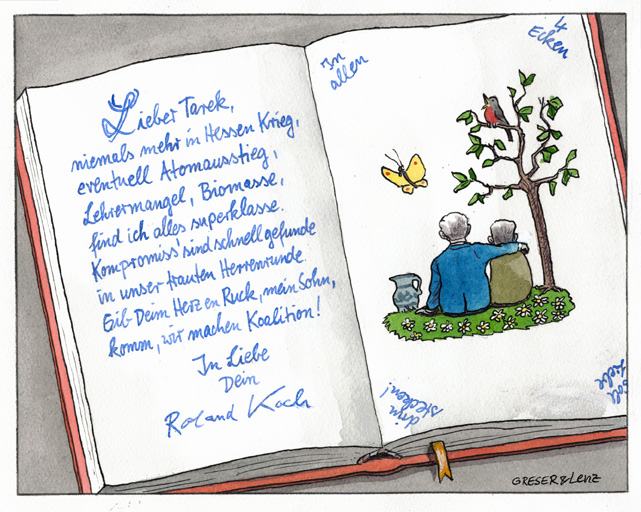 Lieber Tarek,
niemals mehr in Hessen Krieg,
eventuell Atomausstieg,
Lehrermangel, Biomasse,
find ich alles superklasse.
Kompromiss' sind schnell gefunde
in unser trauten Herrenrunde.
Gib Deim Herz en Ruck, mein Sohn,
komm, wir machen Koalition!
In Liebe
Dein
Roland Koch
In
allen
4
Ecken
soll
Liebe
drin
stecken!
GRESER & Lenz